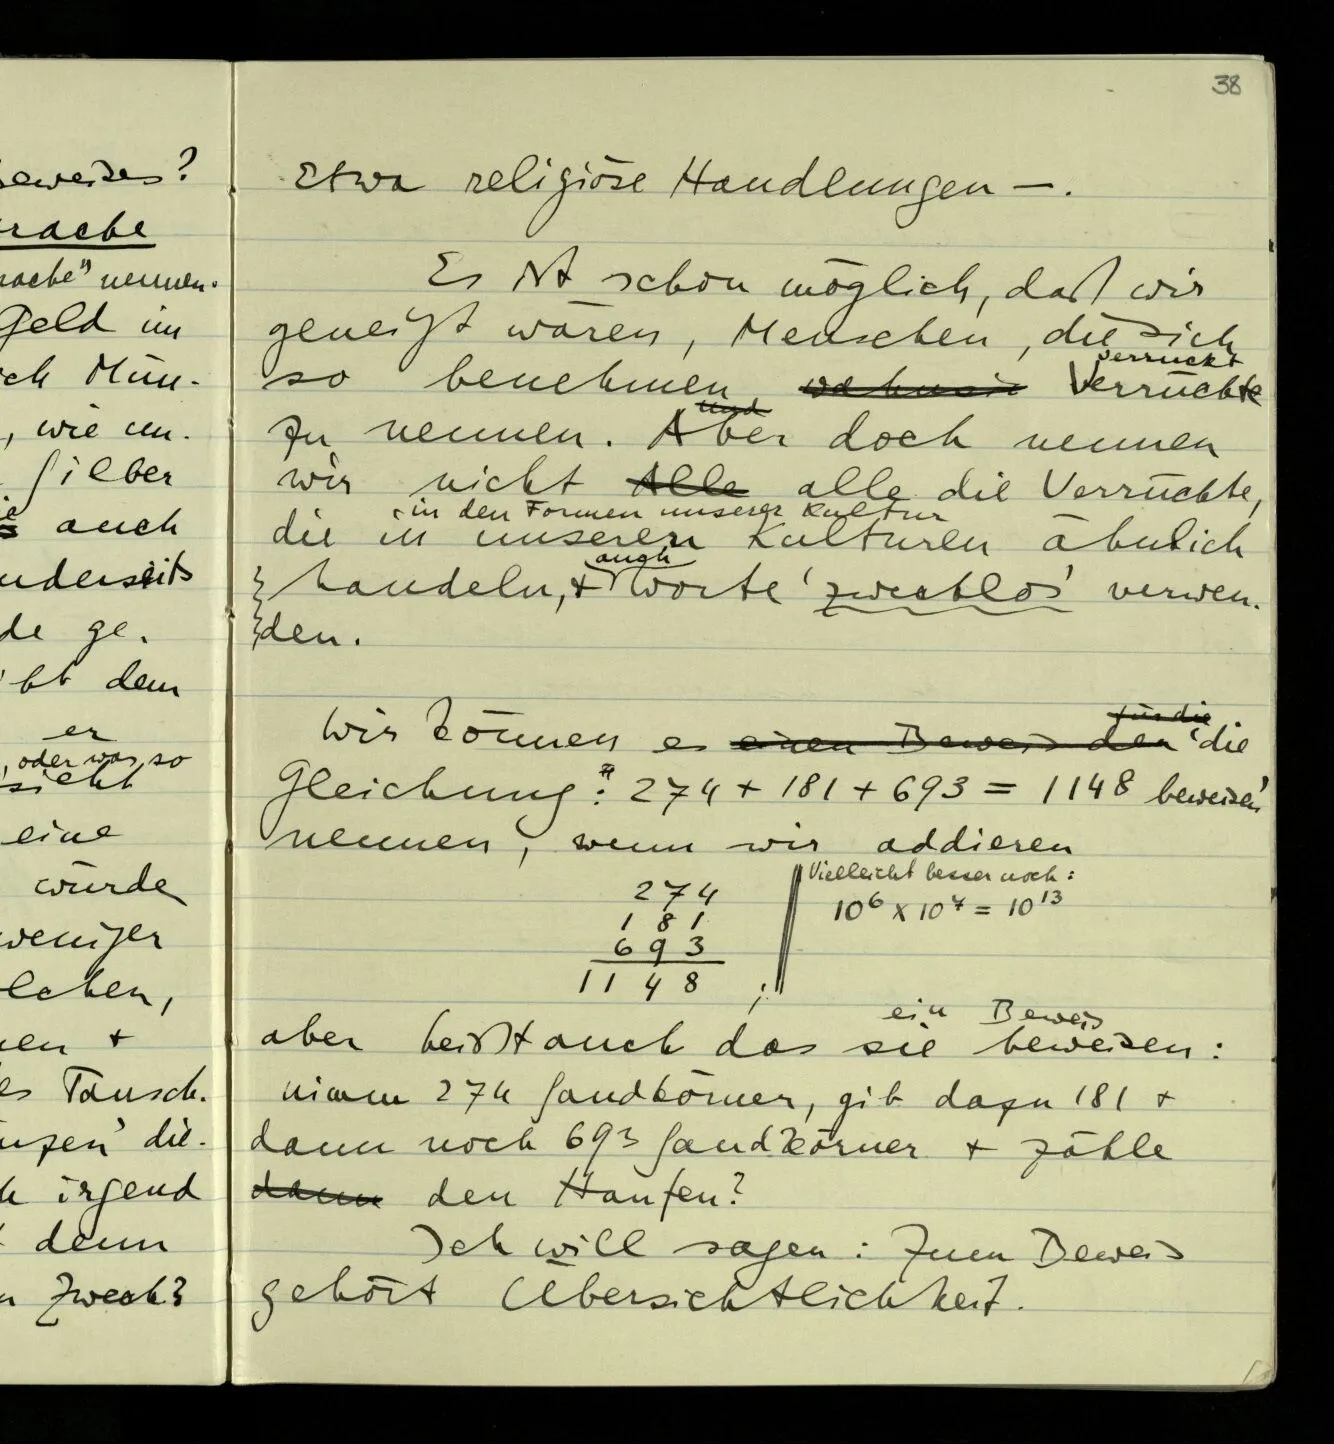 38
beweises?
Sprache
nennen.
Geld im
Mün-
, wie un-
Silber
auch
anderseits
de ge-
dem
er
, oder was so
sieht
eine
würde
weniger
+
Tausch-
die-
irgend
denn
Zweck?
Etwa religiöse Handlungen —.
Es ist schon möglich, daß wir
geneigt wären, Menschen, die sich
verrückt
so benehmen Verrückte
und
zu nennen. Aber doch nennen
wir nicht Alle alle die Verrückte,
in den Formen unserer Kultur
die in unseren Kulturen ähnlich
auch
handeln, + Worte 'zwecklos' verwen-
den.
für die
Wir können es einen Beweis den 'die
Gleichung: 274 + 181 + 693 = 1148 beweisen'
nennen, wenn wir addieren
274
181
693
1148 ;
Vielleicht besser noch:
10⁶ × 10⁷ = 10¹³
ein Beweis
aber heißt auch das sie beweisen:
nimm 274 Sandkörner, gib dazu 181 +
dann noch 693 Sandkörner + zähle
dann den Haufen?
Ich will sagen: Zum Beweis
gehört Übersichtlichkeit.